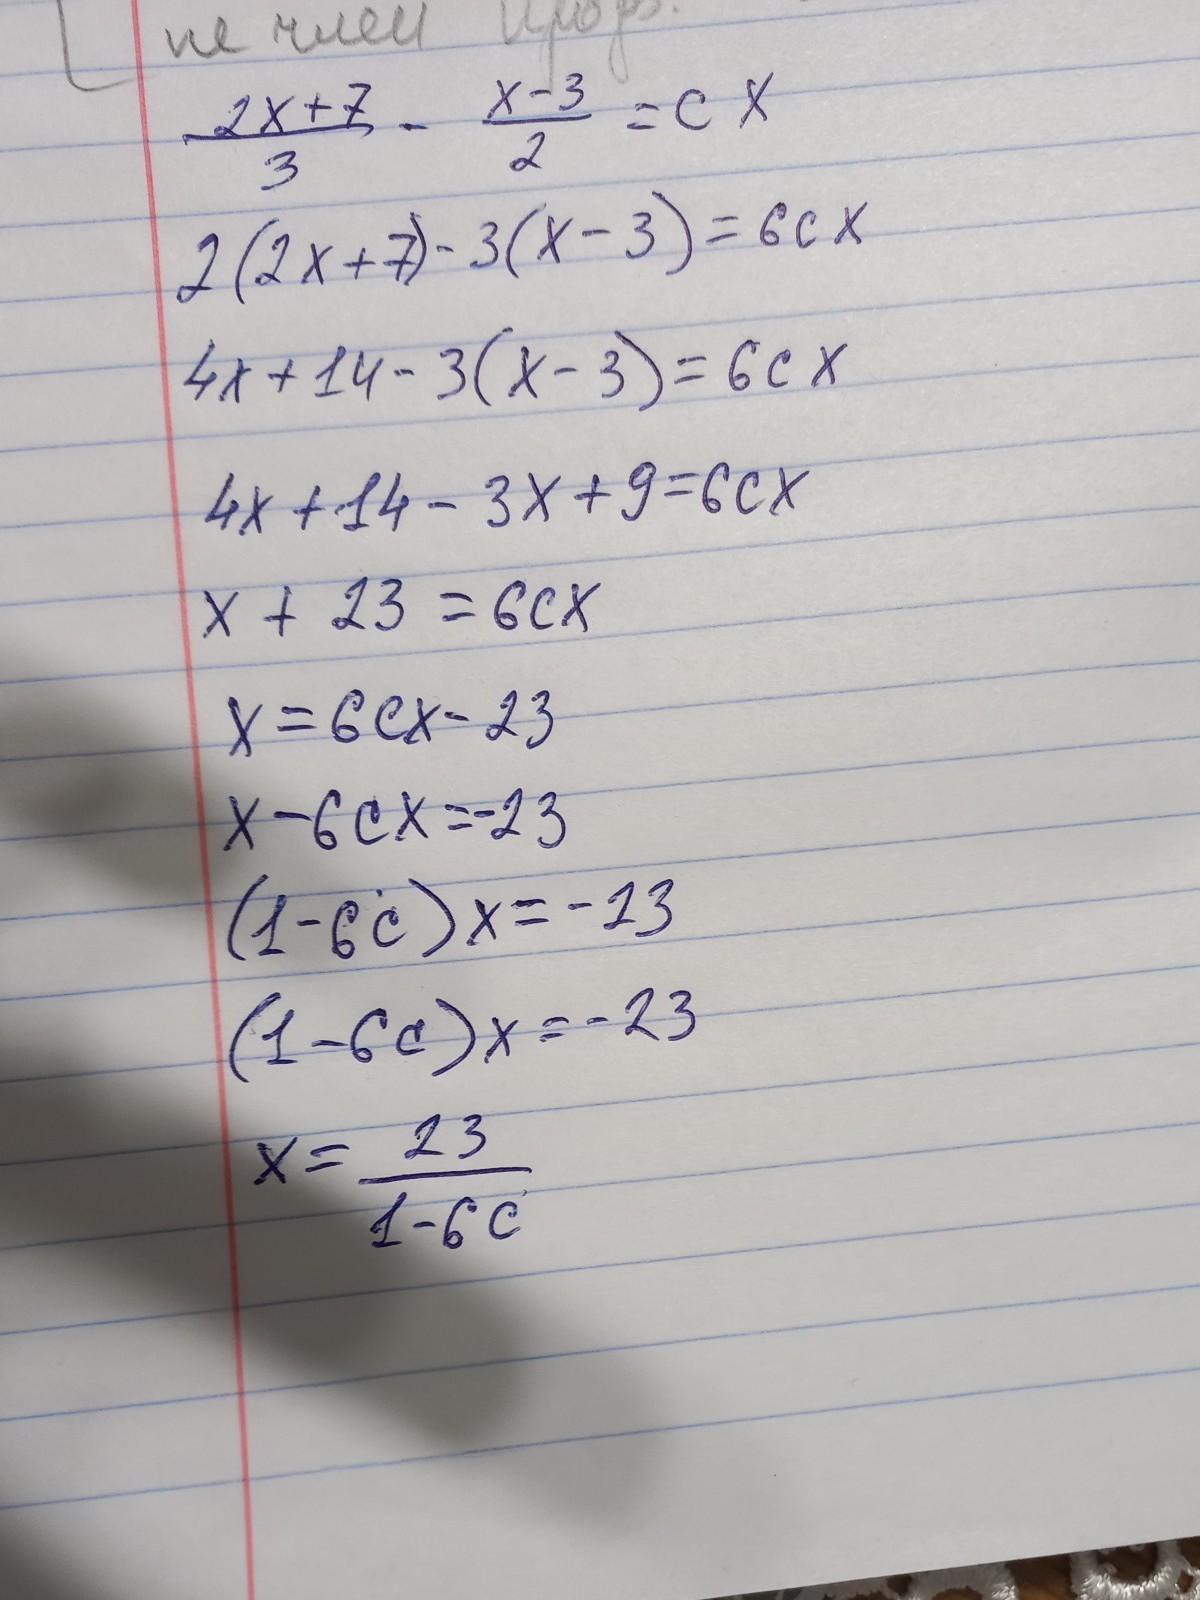 не член прогр.
(2x+7)/3 - (x-3)/2 = cx
2(2x+7)-3(x-3)=6cx
4x+14-3(x-3)=6cx
4x+14-3x+9=6cx
x+23=6cx
x=6cx-23
x-6cx=-23
(1-6c)x=-23
(1-6c)x=-23
x=23/(1-6c)